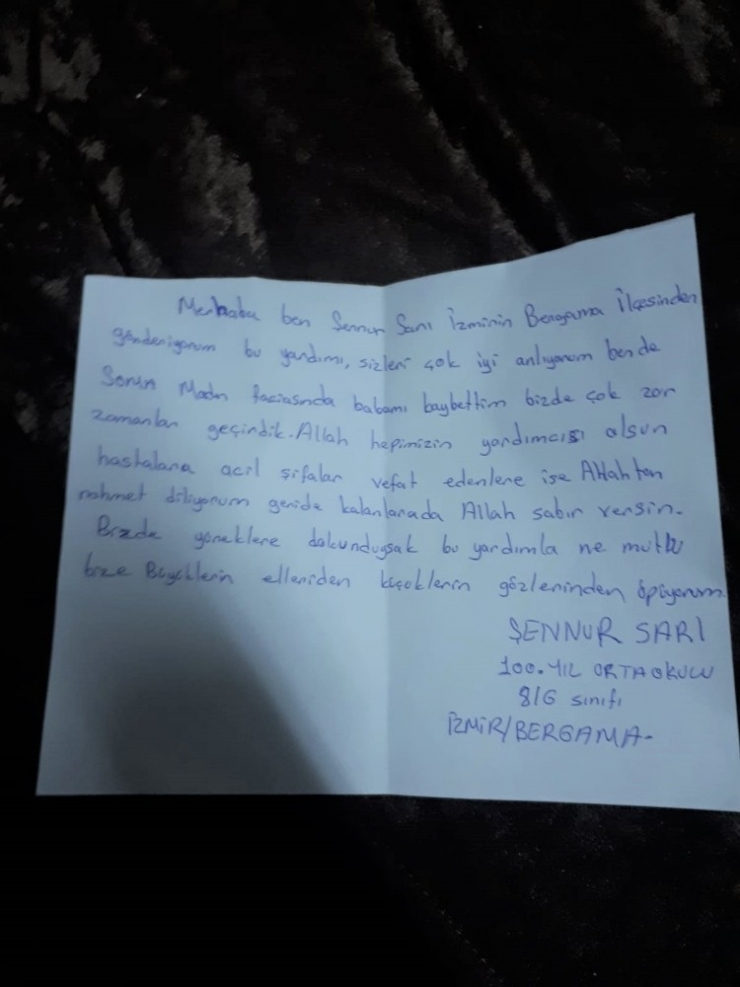 Merhaba ben Sennur Sarı İzminin Bergama İlçesinden
gönderiyorum bu yardımı, sizleri çok iyi anlıyorum bende
Soma Madn faciasında babamı kaybettim bizde çok zor
zamanlar geçirdik. Allah hepimizin yardımcısı olsun
hastalara acil şifalar vefat edenlere ise Allahtan
rahmet diliyorum geride kalanlarada Allah sabır versin.
Bizde yüreklere dokunduysak bu yardımla ne mutlu
bize Büyüklerin elleriden küçüklerin gözlerinden öpüyorum.
ŞENNUR SARI
100. YIL ORTAOKULU
8/G sınıfı
İZMİR/BERGAMA-